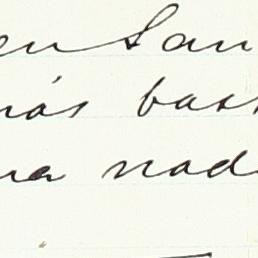 en San
más bas
na nad